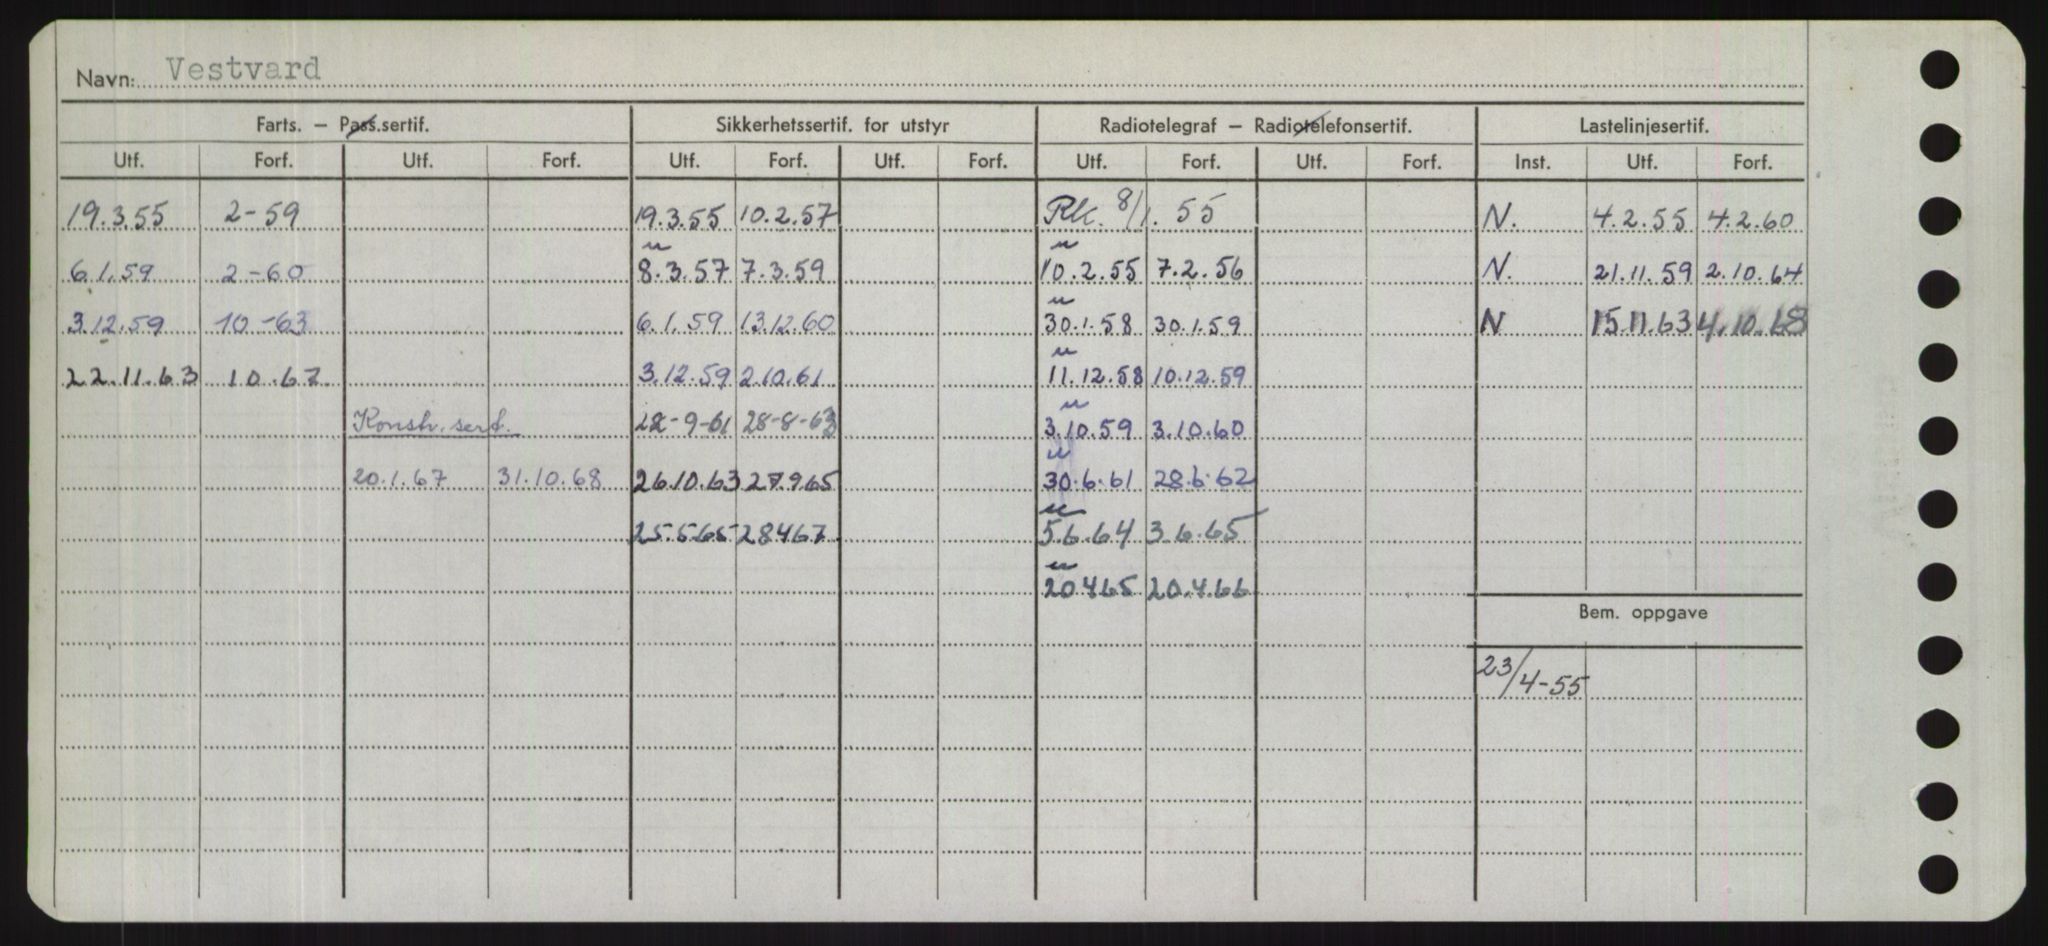 Navn: Vestvard
Farts. — Pass.sertif. Sikkerhetssertif. for utstyr Radiotelegraf — Radiotelefonsertif. Lastelinjesertif.
Utf. Forf. Utf. Forf. Utf. Forf. Utf. Forf. Utf. Forf. Utf. Forf. Inst. Utf. Forf.
19.3.55 2-59 19.3.55 10.2.57 Rk. 8/1. 55 N. 4.2.55 4.2.60
6.1.59 2-60 8.3.57 7.3.59 10.2.55 7.2.56 N. 21.11.59 2.10.64
3.12.59 10-63 6.1.59 13.12.60 30.1.58 30.1.59 N 15.11.63 4.10.68
22.11.63 10.67 3.12.59 2.10.61 11.12.58 10.12.59
Konstr. sert. 22-9-61 28-8-63 3.10.59 3.10.60
20.1.67 31.10.68 26.10.63 27.9.65 30.6.61 28.6.62
25.5.65 28.4.67 5.6.64 3.6.65
20.4.65 20.4.66
Bem. oppgave
23/4-55